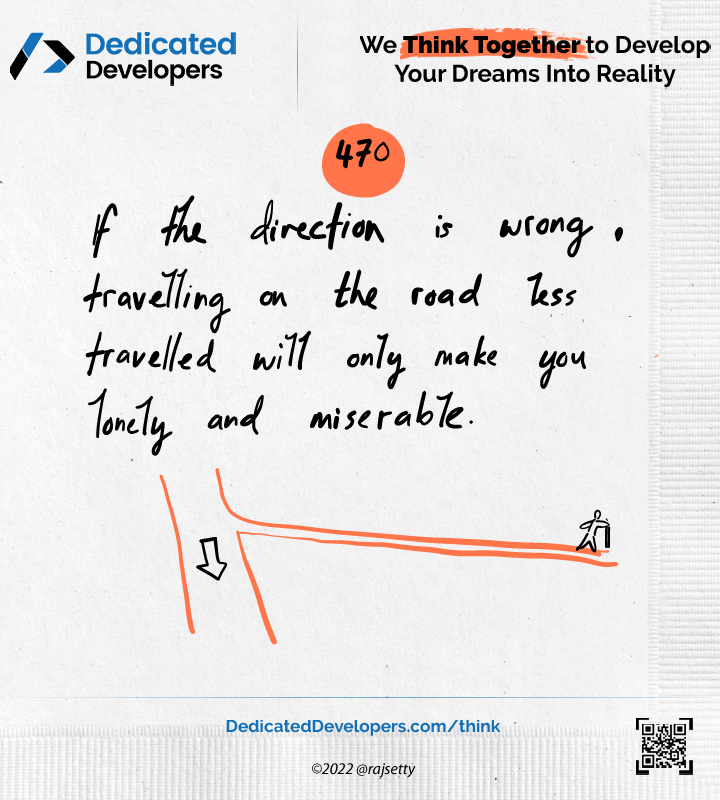 Dedicated
Developers
We Think Together to Develop
Your Dreams Into Reality
470
If the direction is wrong,
travelling on the road less
travelled will only make you
lonely and miserable.
DedicatedDevelopers.com/think
©2022 @rajsetty